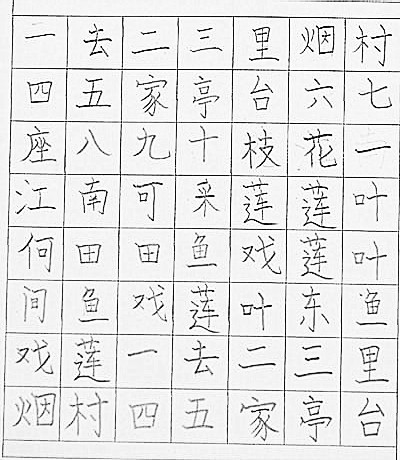 一去二三里烟村
四五家亭台六七
座八九十枝花一
江南可采莲莲叶
何田田鱼戏莲叶
间鱼戏莲叶东鱼
戏莲一去二三里
烟村四五家亭台